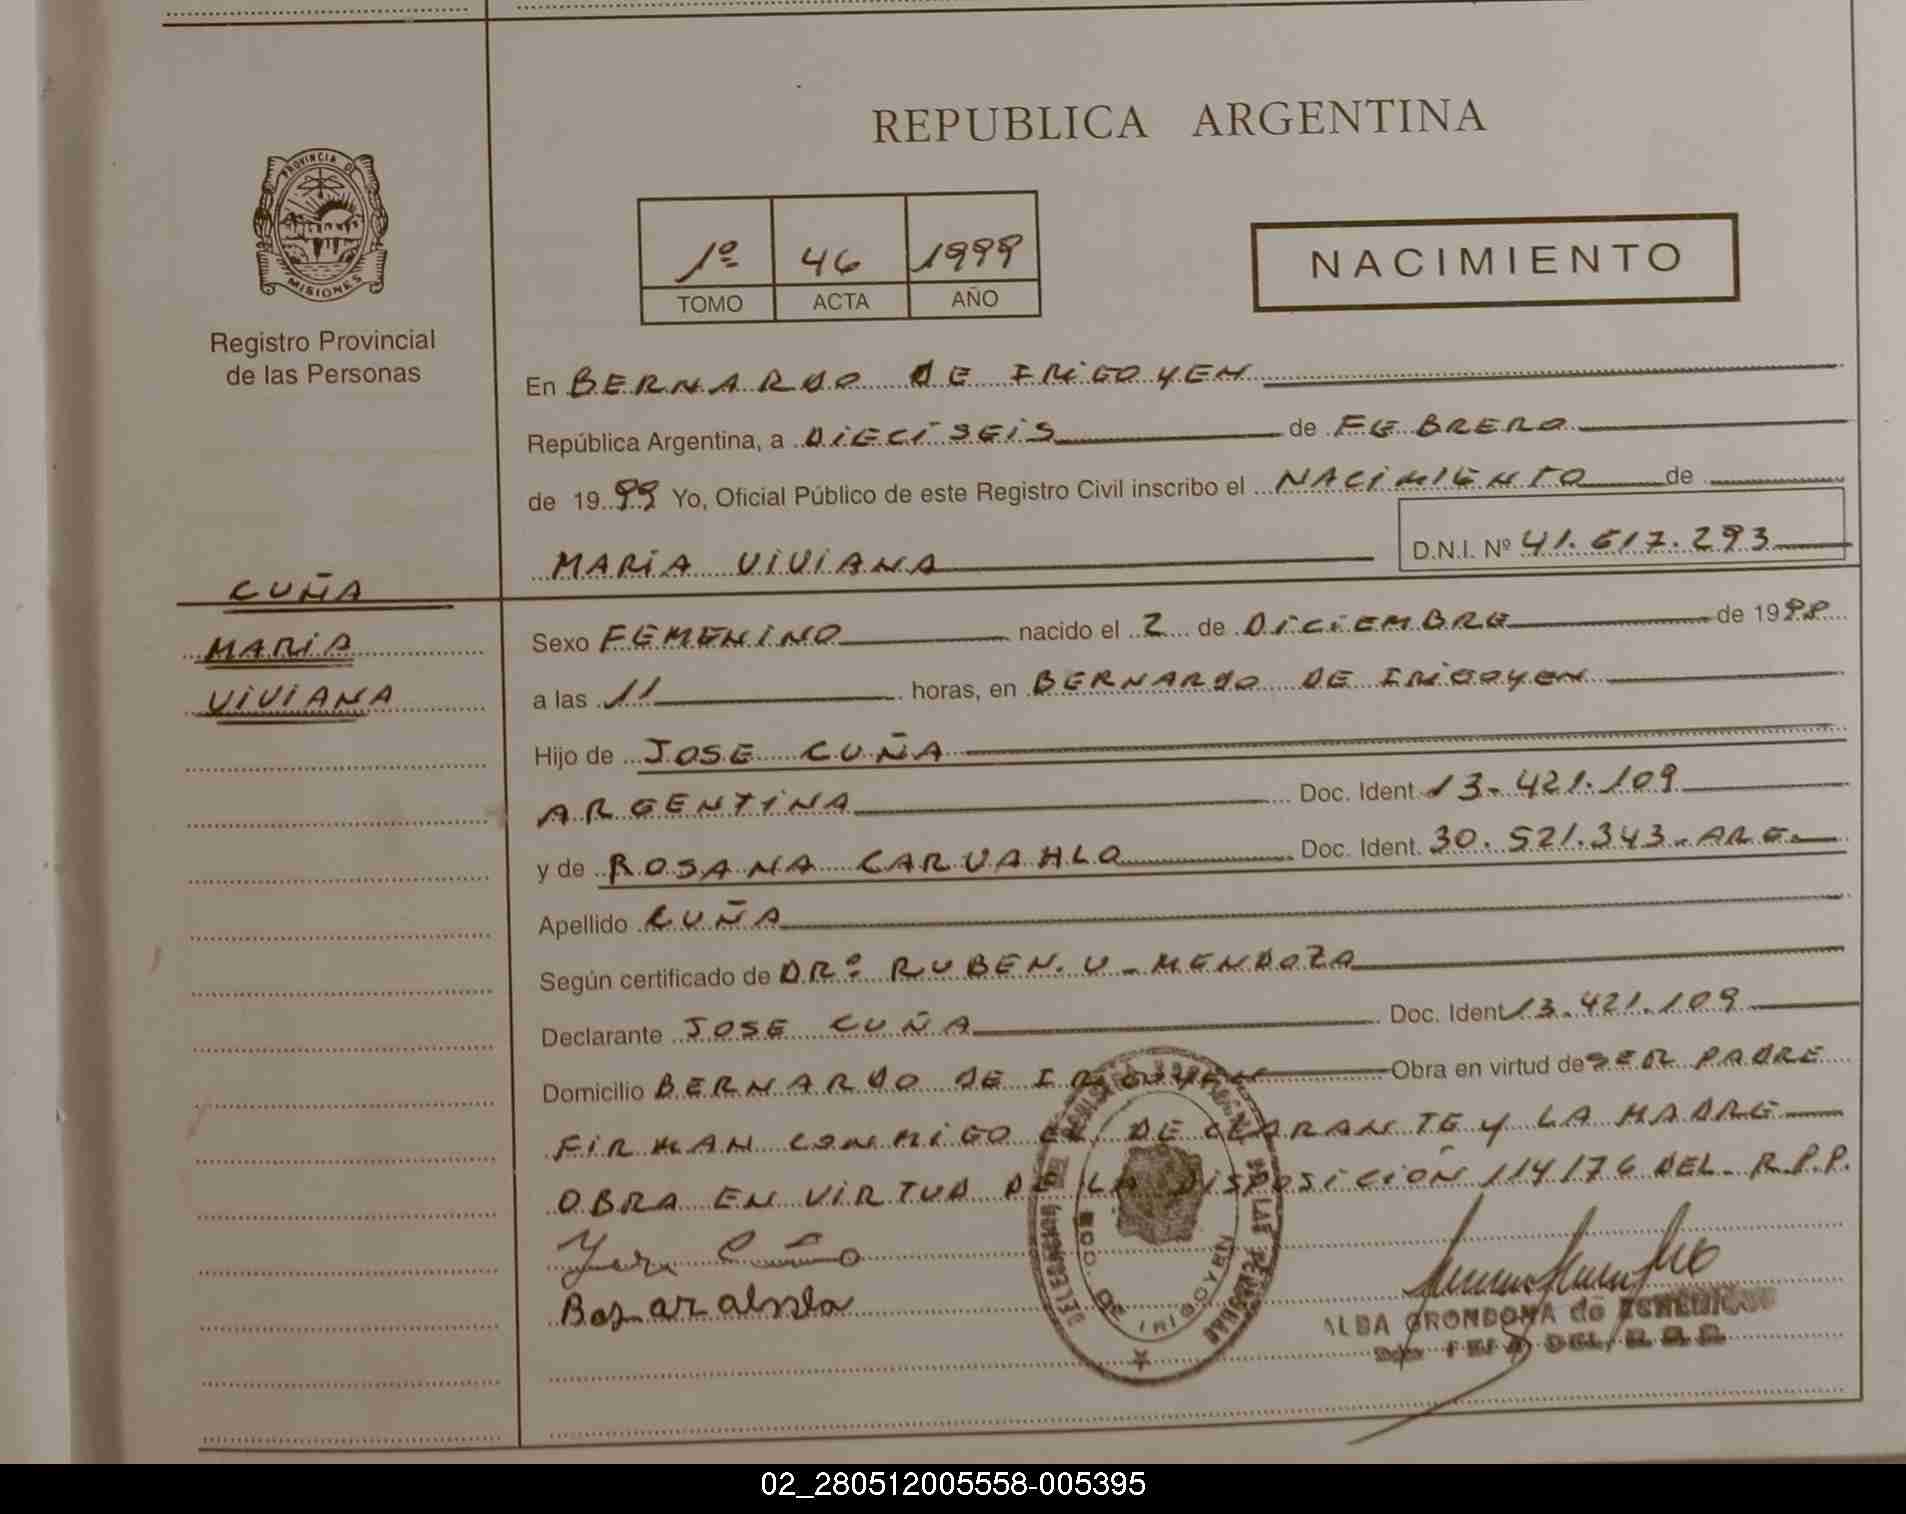 REPUBLICA ARGENTINA
PROVINCIA DE
MISIONES
Registro Provincial
de las Personas
1º 46 1999
TOMO ACTA AÑO
NACIMIENTO
En BERNARDO DE IRIGOYEN
República Argentina, a DIECISEIS de FEBRERO
de 1999 Yo, Oficial Público de este Registro Civil inscribo el NACIMIENTO de
MARIA VIVIANA D.N.I. Nº 41.617.293
CUÑA
MARIA
VIVIANA
Sexo FEMENINO nacido el 2 de DICIEMBRE de 1998
a las 11 horas, en BERNARDO DE IRIGOYEN
Hijo de JOSE CUÑA
ARGENTINA Doc. Ident. 13.421.109
y de ROSANA CARVAHLO Doc. Ident. 30.521.343. ARG.
Apellido CUÑA
Según certificado de DRº RUBEN. V. MENDOZA
Declarante JOSE CUÑA Doc. Ident 13.421.109
Domicilio BERNARDO DE IRIGOYEN Obra en virtud de SER PADRE
FIRMAN CONMIGO EL DECLARANTE Y LA MADRE
OBRA EN VIRTUD DE LA DISPOSICIÓN 114176 DEL R.P.P.
BDO. DE IRIGOYEN
ALBA GRONDONA de
02_280512005558-005395